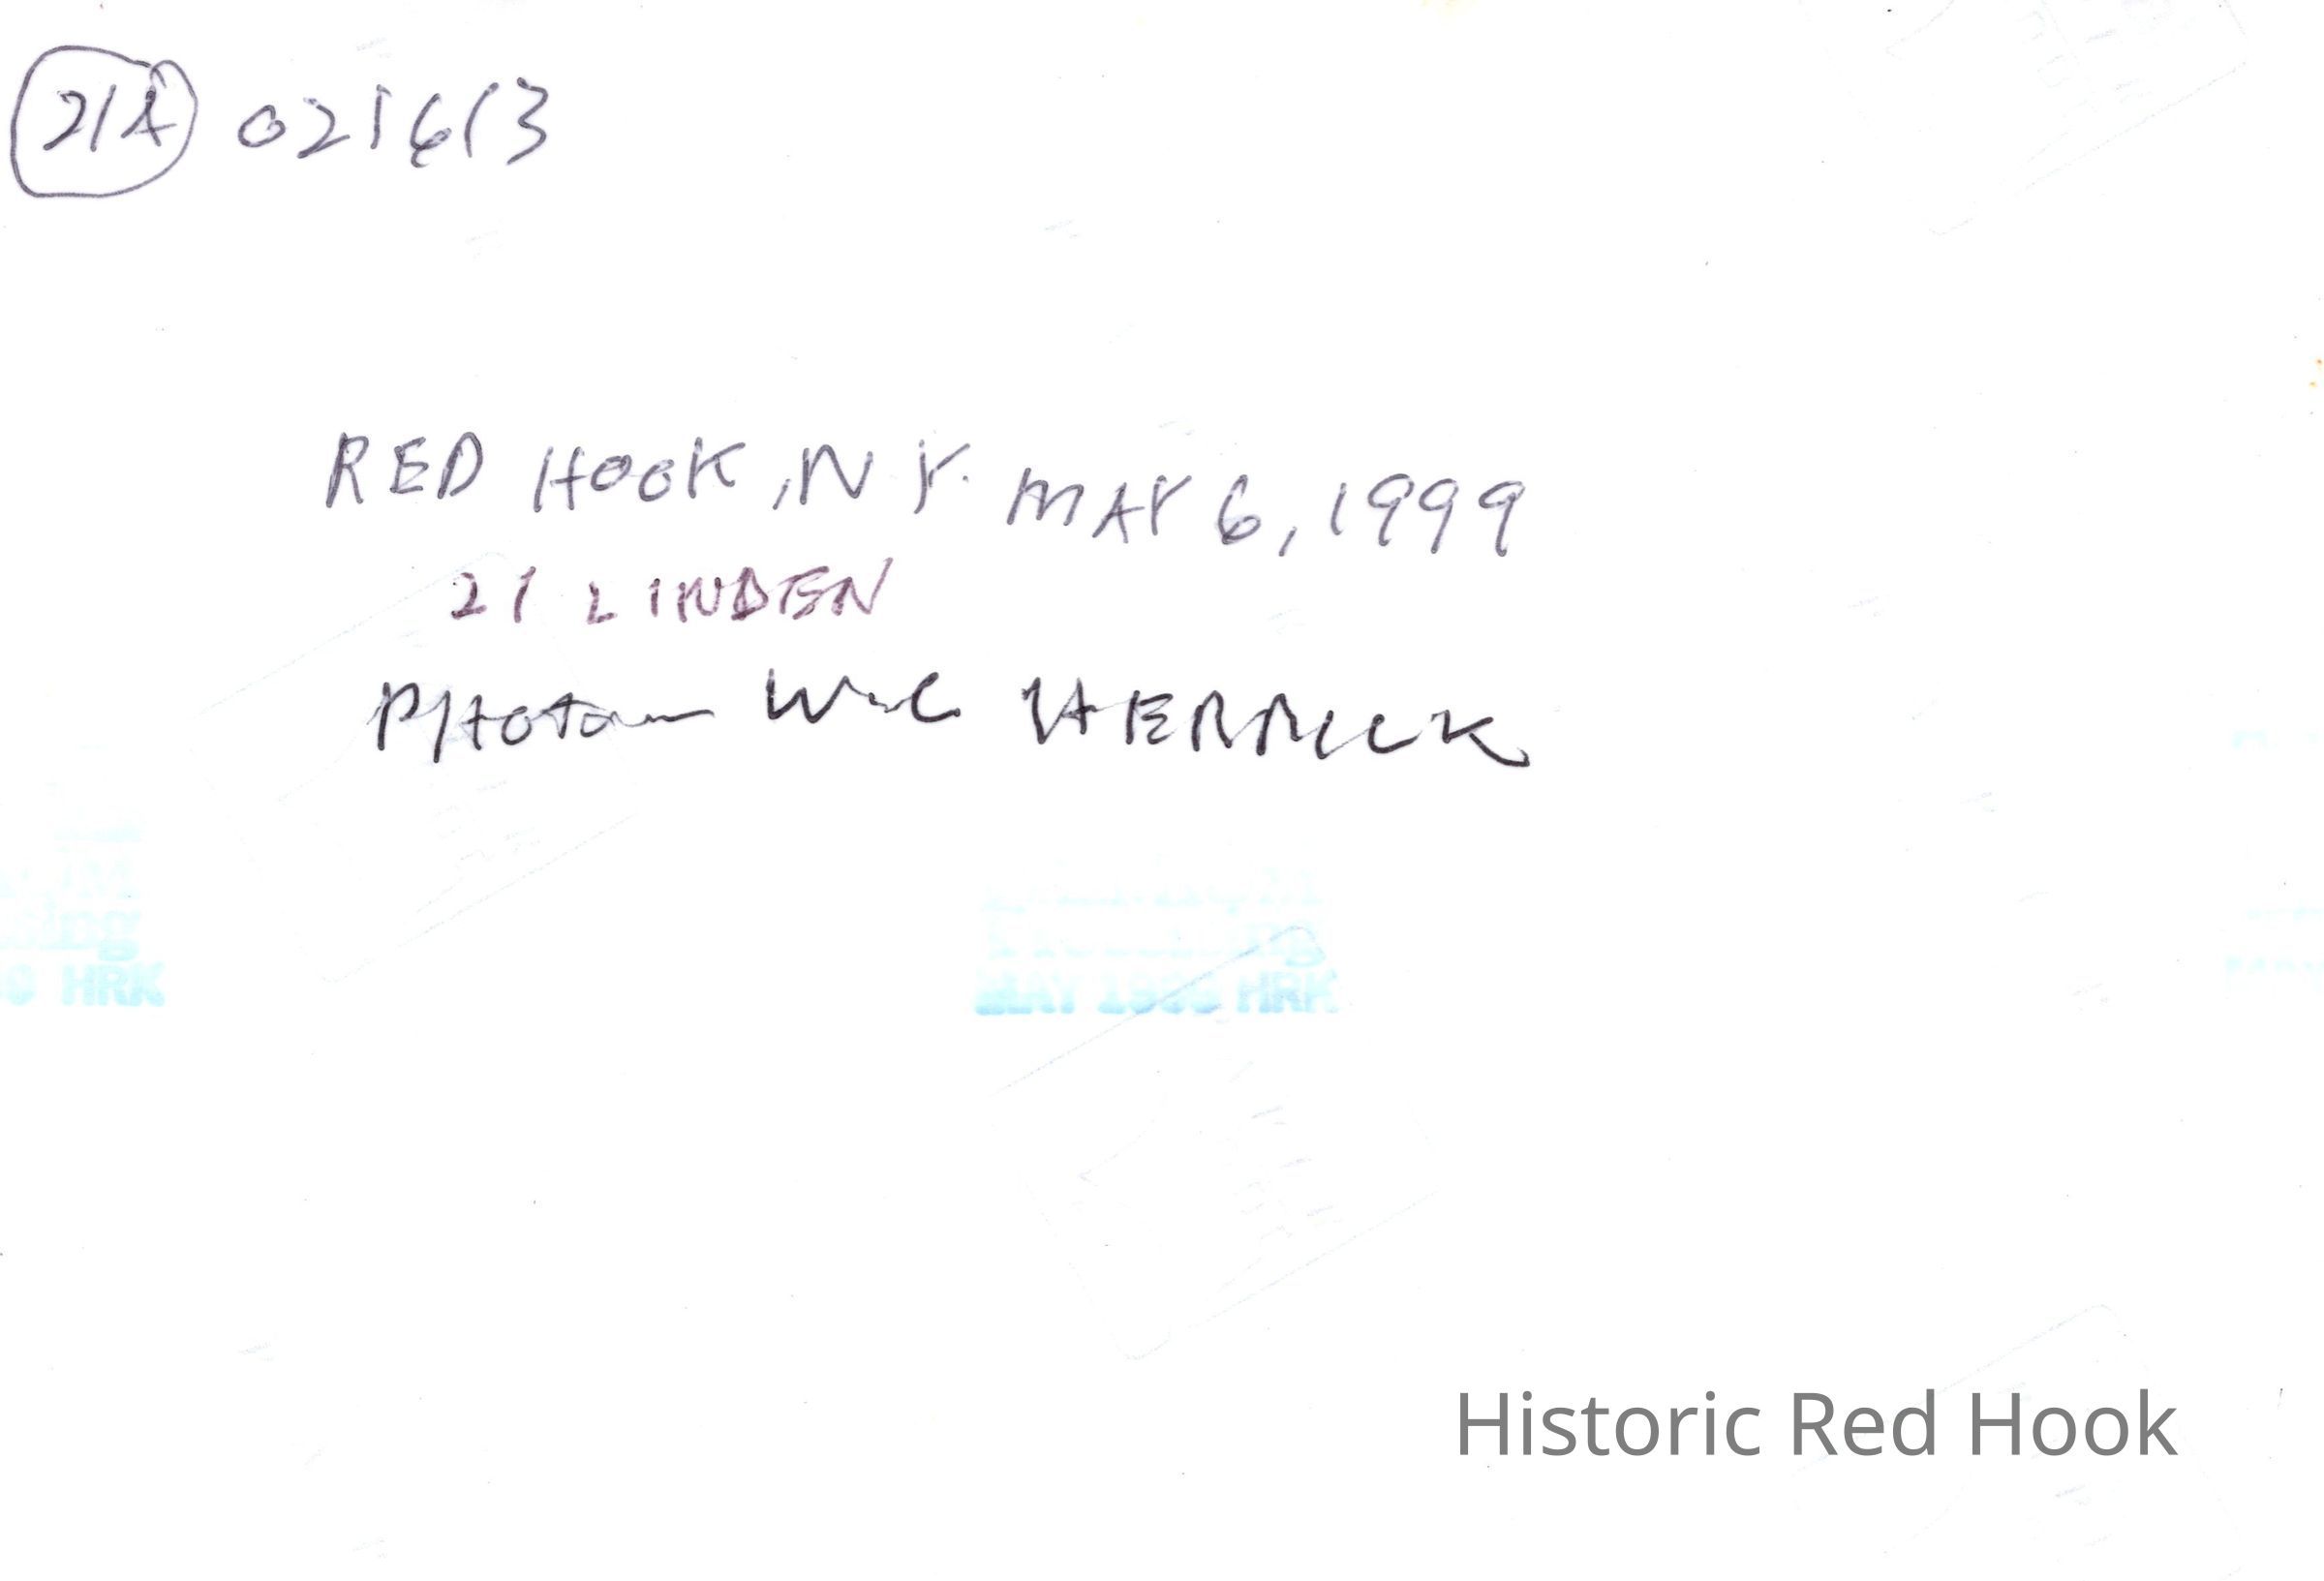 21A 021613
RED HOOK, N.Y. MAY 6, 1999
21 LINDEN
HERRICK
HRK
MAY 1999 HRK
Historic Red Hook